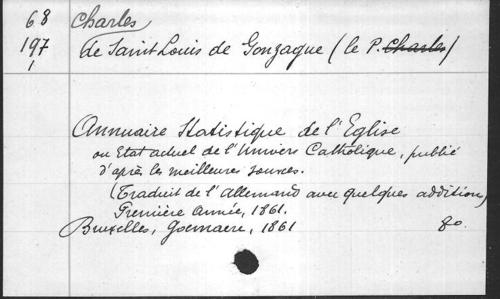 68 Charles
197 de Saint Louis de Gonzague (le P. Charles)
1
Annuaire Statistique de l'Eglise
ou Etat actuel de l'Univers Catholique, publié
d'après les meilleures sources.
(Traduit de l'Allemand avec quelques addition)
Première Année, 1861.
Bruxelles, Goemaere, 1861 8o.